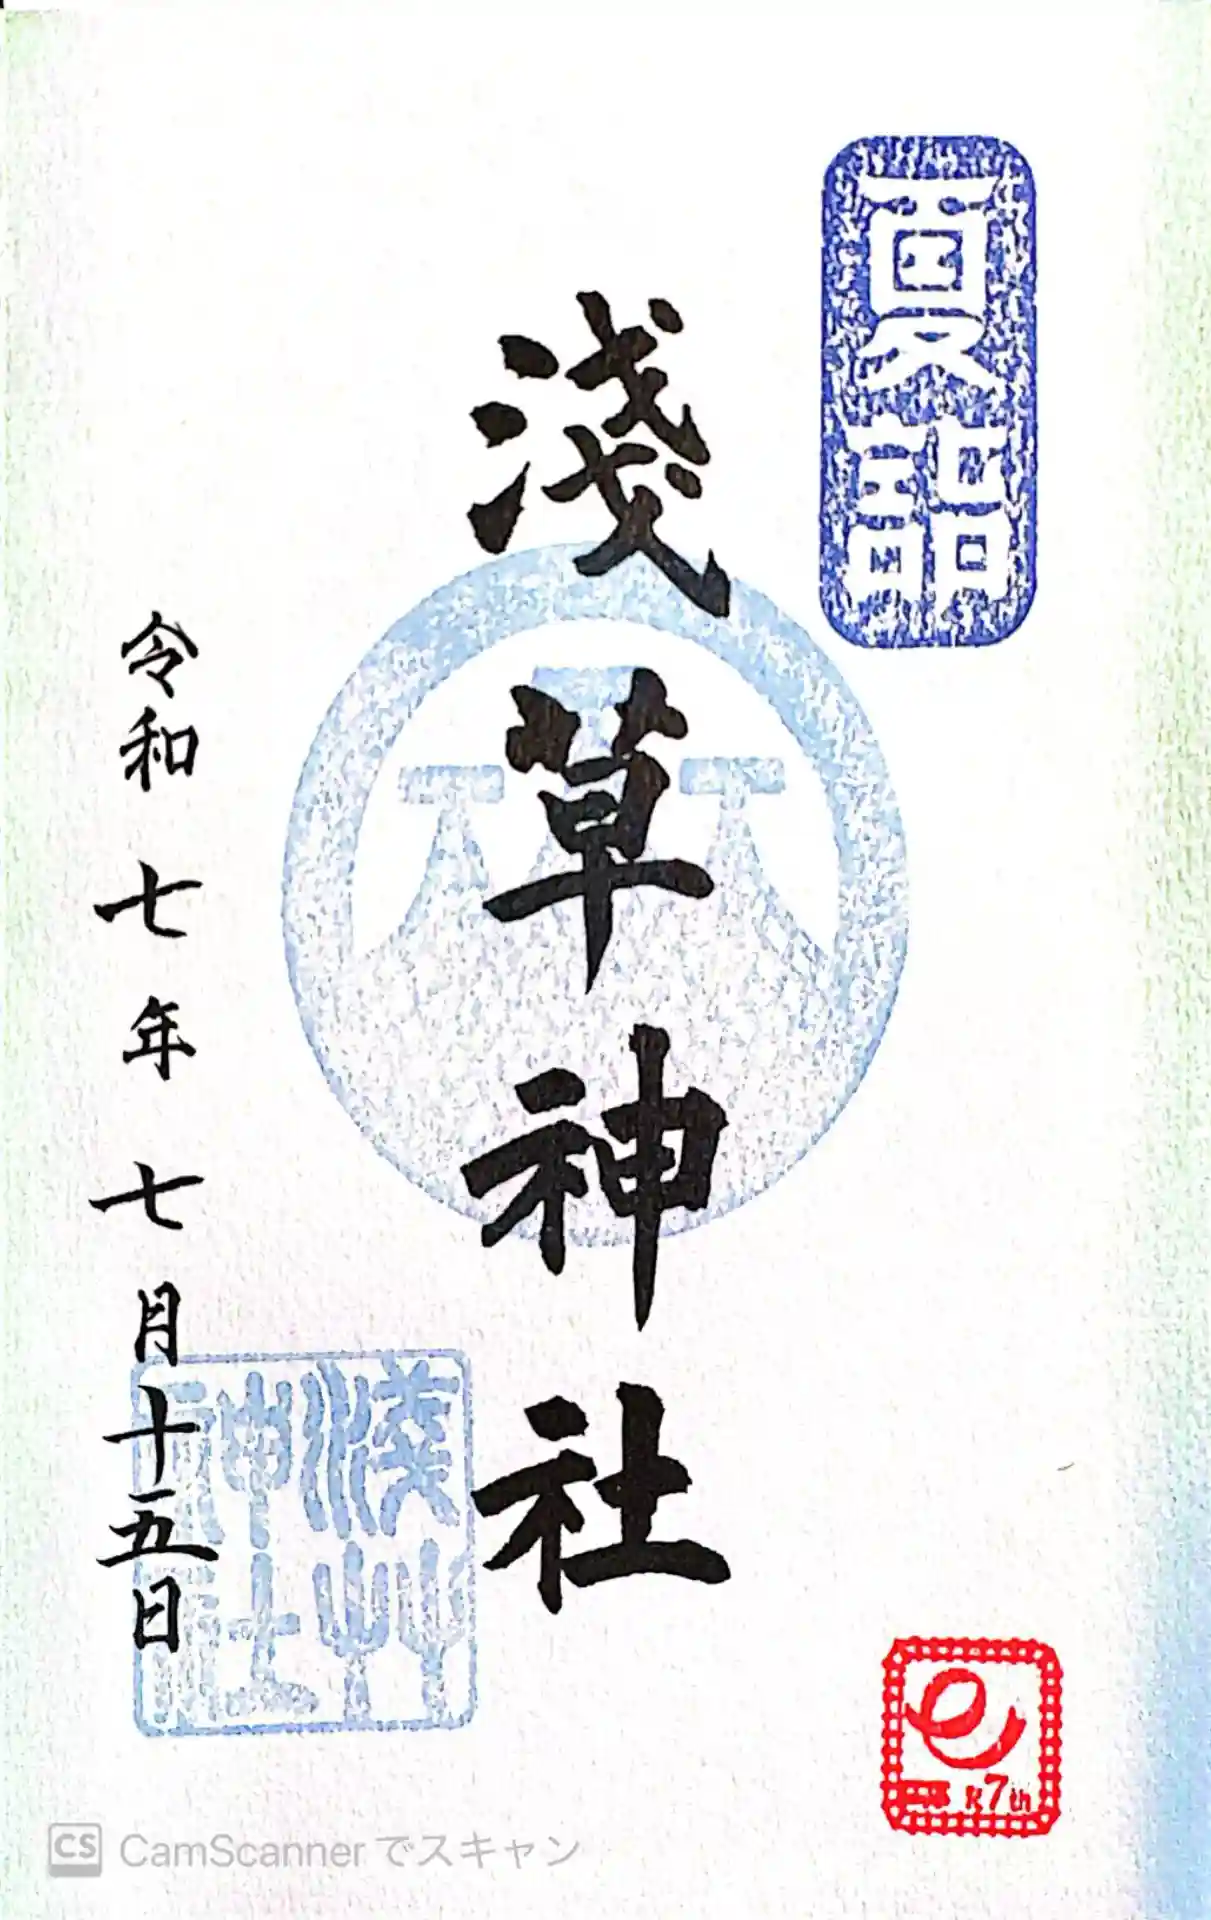 夏詣
淺草神社
令和七年七月十五日
淺草
神社
R7th
CamScannerでスキャン